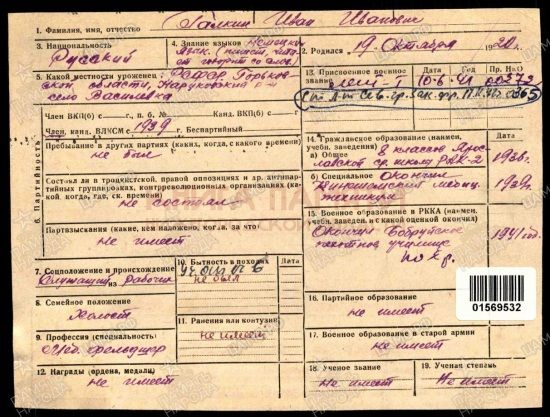 1. Фамилия, имя, отчество Галкин Иван Иванович
3. Национальность
Русский
4. Знание языков Немецкий
2. Родился 19 Октября 1920 г.
5. Какой местности уроженец:
село Василевка
13. Присвоенное военное звание
Дата
Год
Пр. НКО
10.6.41
00373
0365
6. Партийность
Член ВКП(б) с п. б. № Канд. ВКП(б) с
Член, канд. ВЛКСМ с 1939 г. Беспартийный
Пребывание в других партиях (каких, когда, с какого времени)
не был
Состоял ли в троцкистской, правой оппозициях и др. антипартийных группировках, контрреволюционных организациях (каких, когда, где, ск. времени)
не состоял
Партвзыскания (какие, кем наложено, когда, за что)
не имеет
14. Гражданское образование (наимен. учебн. заведения)
а) Общее 8 классов
1936г.
б) Специальное Окончил
Кинешемский медиц.
техникум
1939г.
15. Военное образование в РККА (наимен. учебн. заведен. и с какой оценкой окончил)
Окончил Бобруйское
пехотное училище
1941 год.
по хр.
7. Соцположение и происхождение
Служащий из рабочих
10. Бытность в походах
Дата
не был
8. Семейное положение
Холост
11. Ранения или контузии
не имеет
9. Профессия (специальность)
Мед. фельдшер
12. Награды (ордена, медали)
не имеет
16. Партийное образование
не имеет
17. Военное образование в старой армии
не имеет
18. Ученое звание
не имеет
19. Ученая степень
Не имеет
01569532